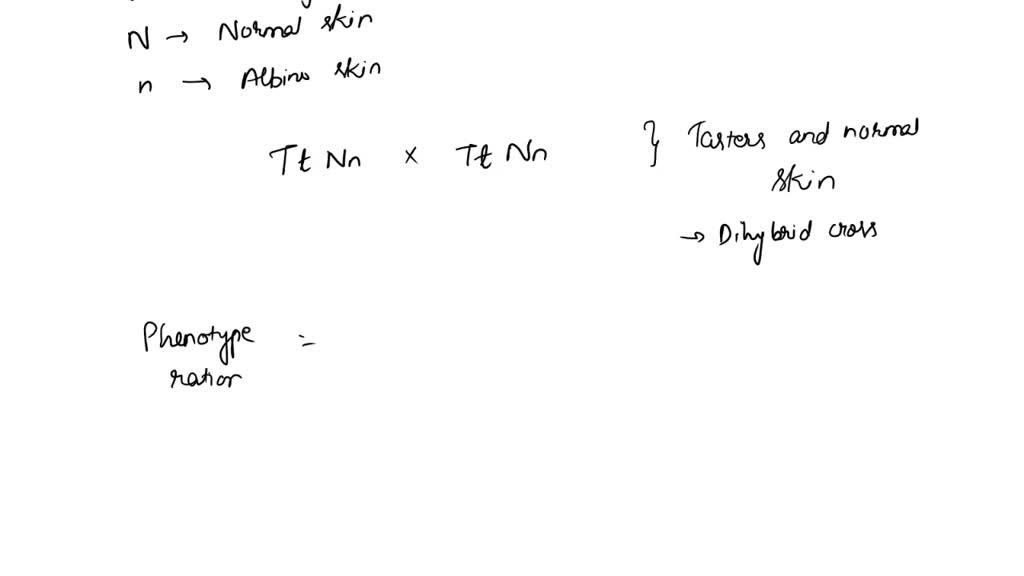 N → Normal skin
n → Albino skin
Tt Nn × Tt Nn } Tasters and normal
skin
→ Dihybrid cross
Phenotype =
ration